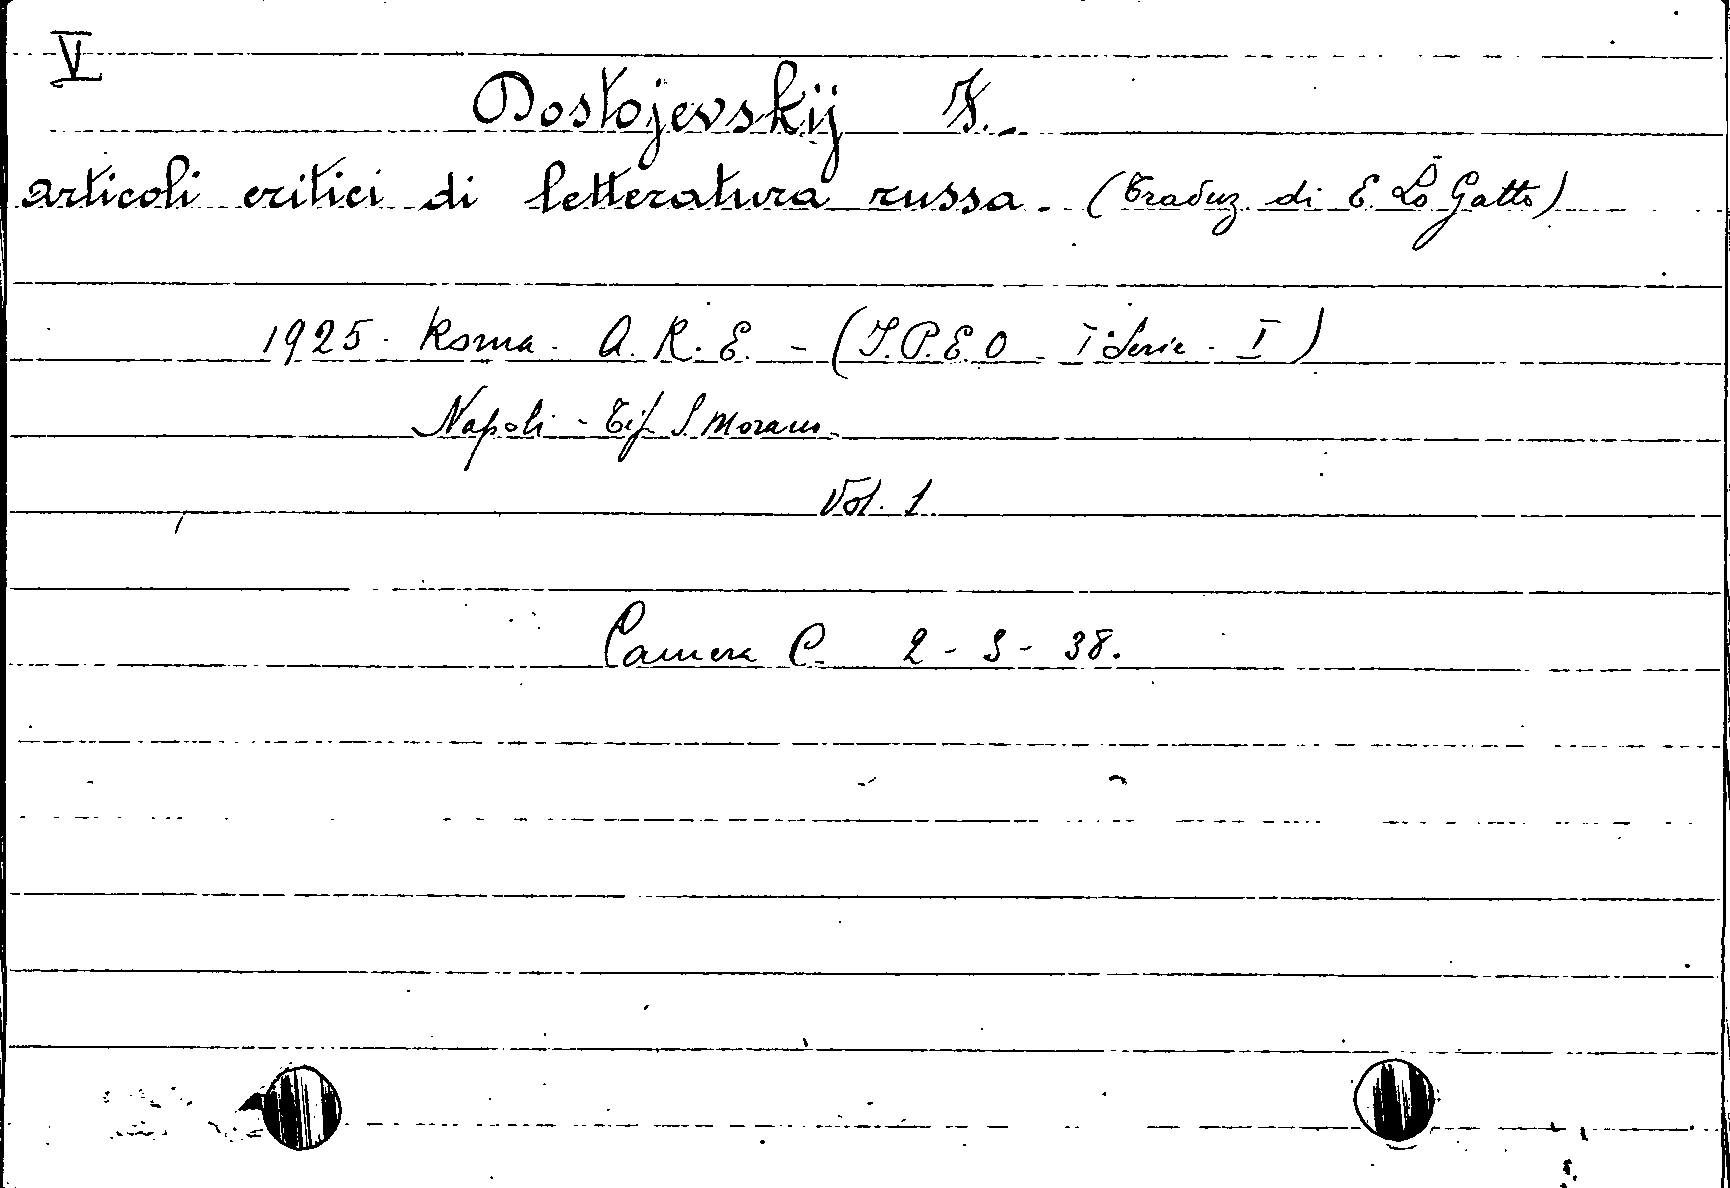 V
Dostojevskij F. -
articoli critici di letteratura russa. (Traduz. di E. Lo Gatto)
1925. Roma. A. R. E. - (I.P.E.O. Iª Serie. I)
Napoli - Tip. S. Morano.
Vol. 1.
Camera C. 2 - 3 - 38.